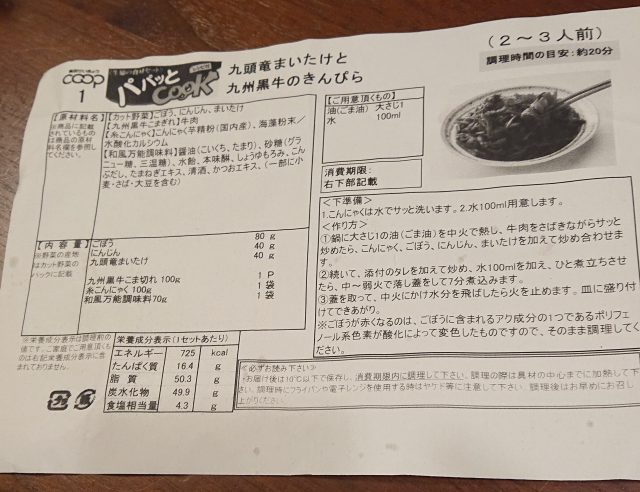 COOP
1
生協の食材セット
レシピ付
パパッと
COOK
九頭竜まいたけと
九州黒牛のきんぴら
(2~3人前)
調理時間の目安:約20分
【原材料名】
※商品に記載
されているもの
は商品の原材
料名欄を参照し
てください。
【カット野菜】ごぼう、にんじん、まいたけ
【九州黒牛こまぎれ】牛肉
【糸こんにゃく】こんにゃく芋精粉(国内産)、海藻粉末/
水酸化カルシウム
【和風万能調味料】醤油(こいくち、たまり)、砂糖(グラ
ニュー糖、三温糖)、水飴、本味醂、しょうゆもろみ、こん
ぶだし、たまねぎエキス、清酒、かつおエキス、(一部に小
麦・さば・大豆を含む)
【内容量】
※野菜の産地
はカット野菜の
パックに記載
ごぼう 80 g
にんじん 40 g
九頭竜まいたけ 40 g
九州黒牛こま切れ 100g 1 P
糸こんにゃく 100g 1 袋
和風万能調味料70g 1 袋
※栄養成分表示は調理前の
値です。ご家庭でご用意頂くも
のは右記栄養成分表示に含
まれておりません。
栄養成分表示(1セットあたり)
エネルギー 725 kcal
たんぱく質 16.4 g
脂 質 50.3 g
炭水化物 49.9 g
食塩相当量 4.3 g
【ご用意頂くもの】
油(ごま油) 大さじ1
水 100ml
消費期限:
右下部記載
<下準備>
1.こんにゃくは水でサッと洗います。2.水100ml用意します。
<作り方>
①鍋に大さじ1の油(ごま油)を中火で熱し、牛肉をさばきながらサッと
炒めたら、こんにゃく、ごぼう、にんじん、まいたけを加えて炒め合わせま
す。
②続いて、添付のタレを加えて炒め、水100mlを加え、ひと煮立ちさせ
たら、中~弱火で落し蓋をして7分煮込みます。
③蓋を取って、中火にかけ水分を飛ばしたら火を止めます。皿に盛り付
けてできあがり。
※ごぼうが赤くなるのは、ごぼうに含まれるアク成分の1つであるポリフェ
ノール系色素が酸化によって変色したものですので、そのまま調理してく
ださい。
<必ずお読み下さい>
・お届け後は10℃以下で保存し、消費期限内に調理して下さい。調理の際は具材の中心までに加熱して下
さい。調理時にフライパンや電子レンジを使用する時はヤケド等に注意して下さい。調理後はお早めにお召し
上がりください。